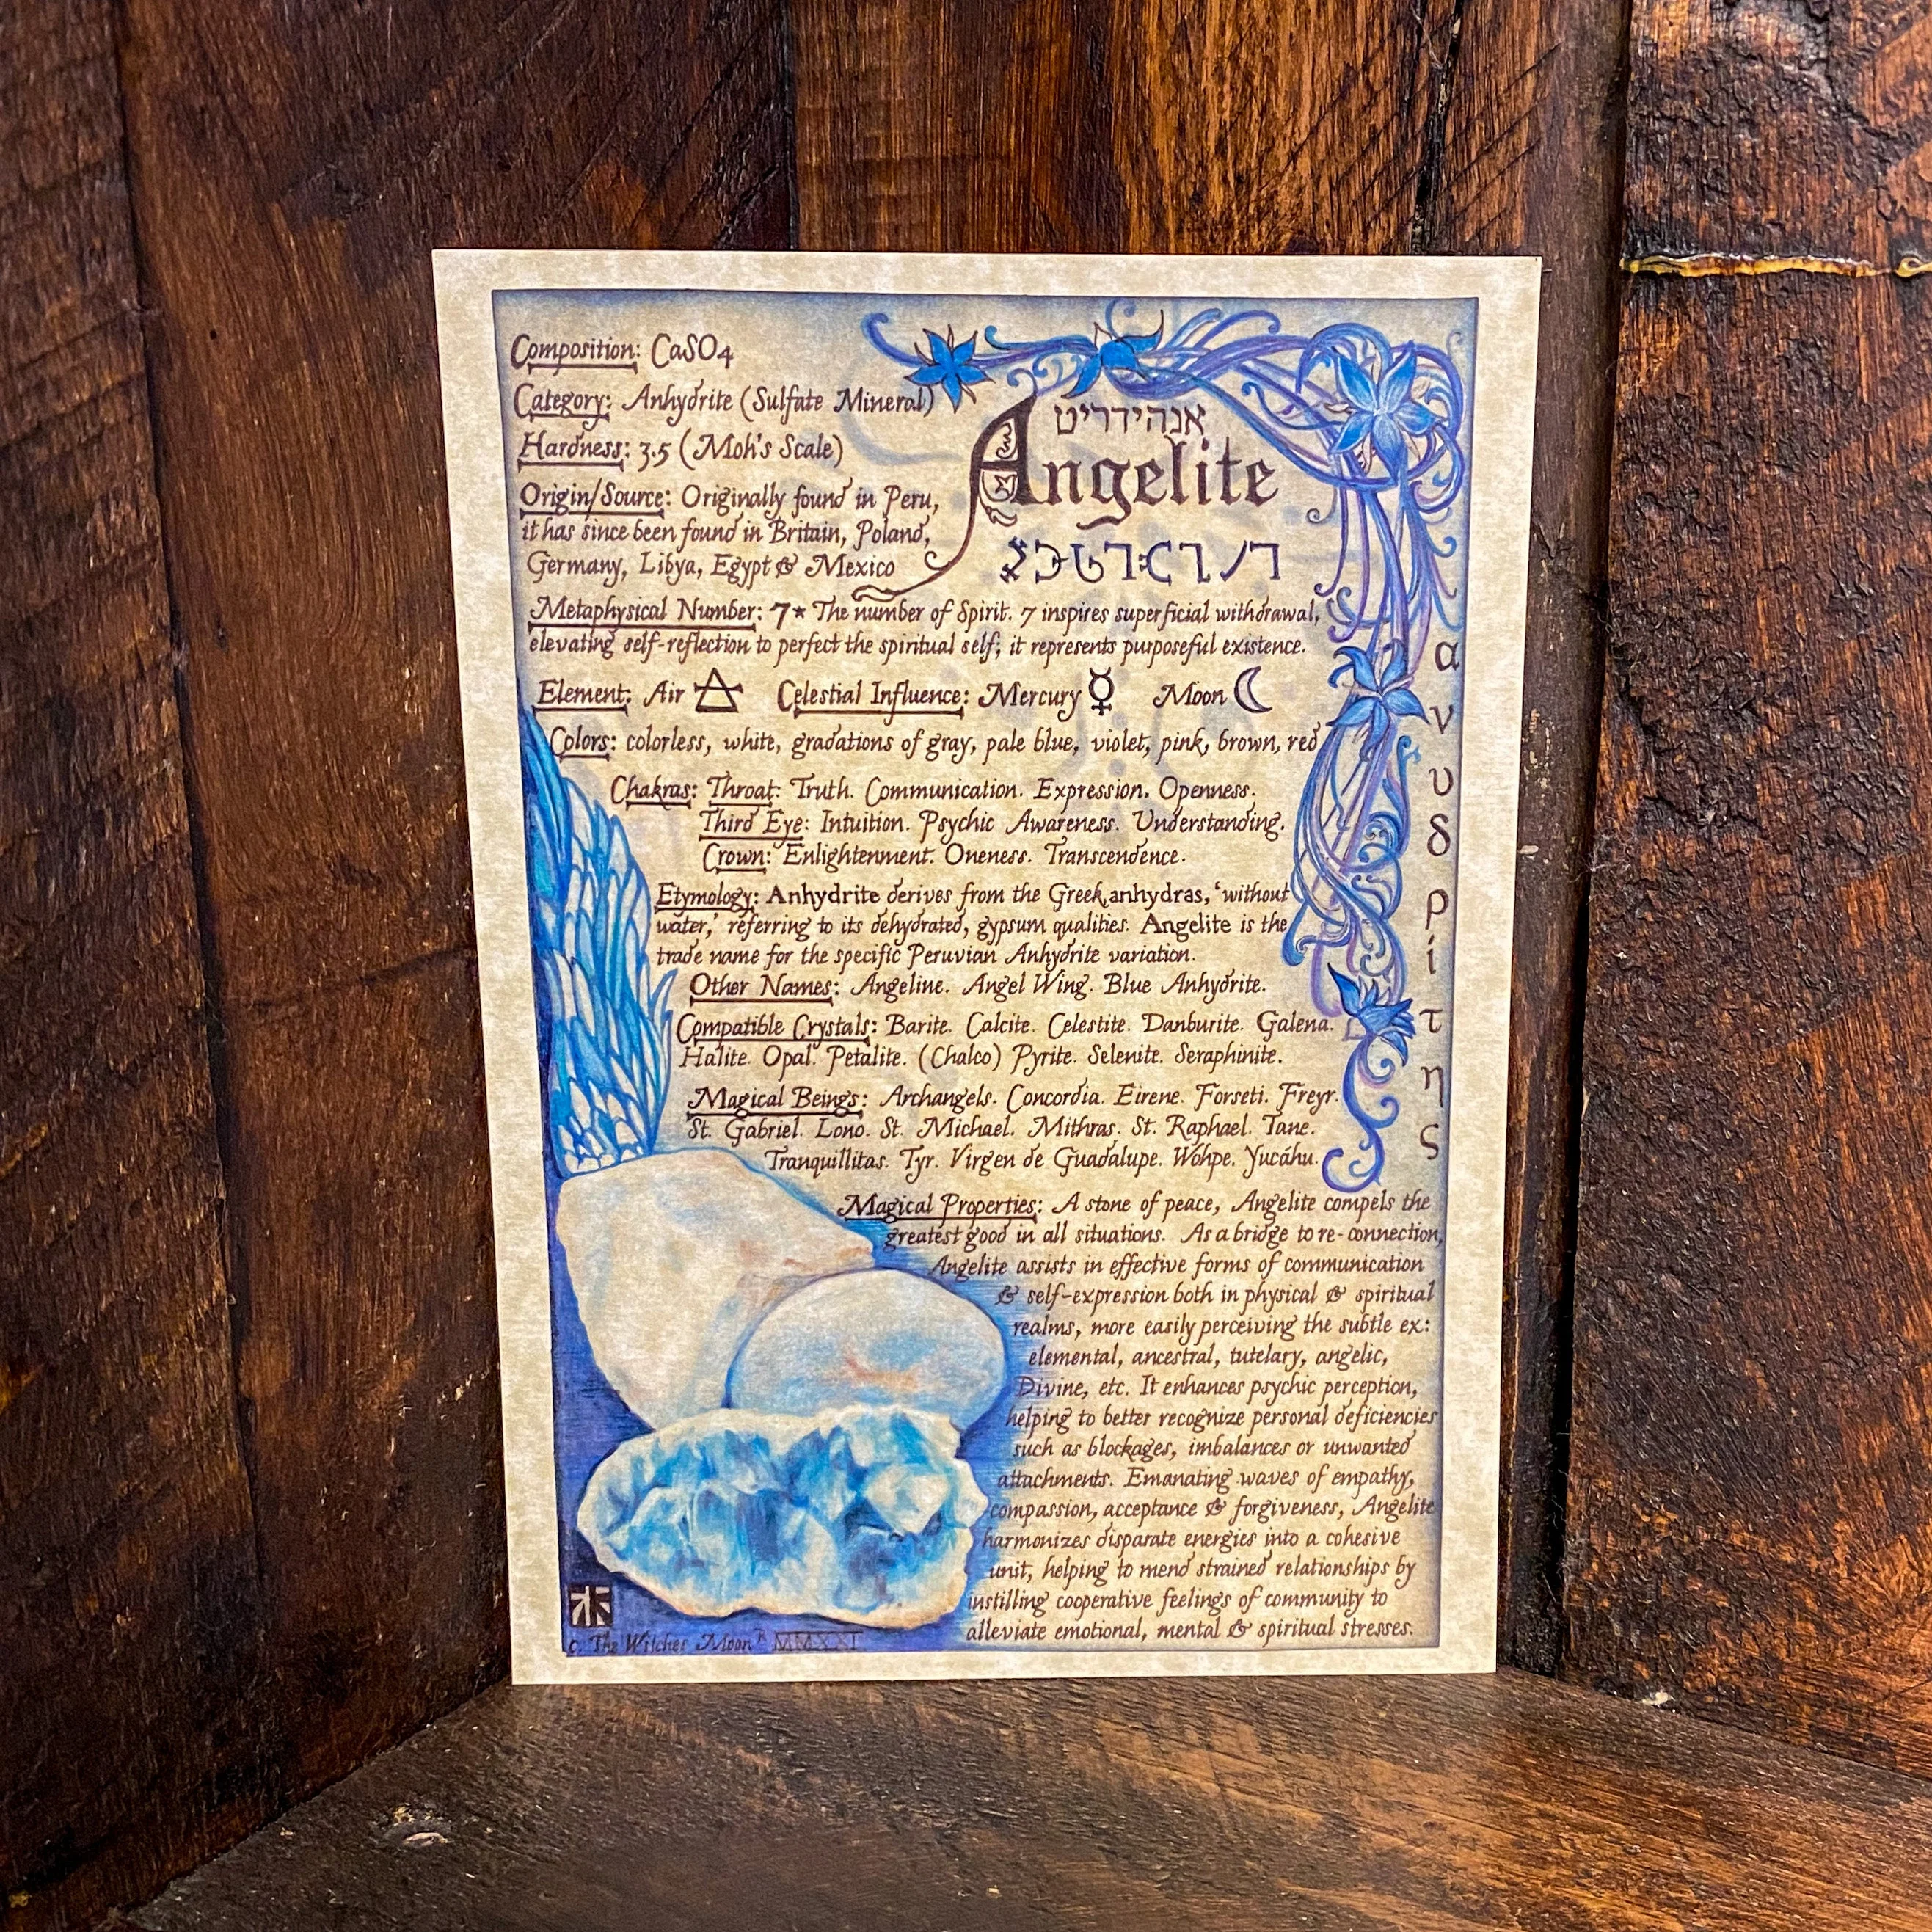 Composition: CaSO4
Category: Anhydrite (Sulfate Mineral)
Hardness: 3.5 (Moh's Scale)
Origin/Source: Originally found in Peru,
it has since been found in Britain, Poland,
Germany, Libya, Egypt & Mexico
אנהידריט
Angelite
Metaphysical Number: 7* The number of Spirit. 7 inspires superficial withdrawal,
elevating self-reflection to perfect the spiritual self; it represents purposeful existence.
Element: Air Celestial Influence: Mercury ☿ Moon ☾
Colors: colorless, white, gradations of gray, pale blue, violet, pink, brown, red
Chakras: Throat: Truth. Communication. Expression. Openness.
Third Eye: Intuition. Psychic Awareness. Understanding.
Crown: Enlightenment. Oneness. Transcendence.
Etymology: Anhydrite derives from the Greek, anhydras, 'without
water,' referring to its dehydrated, gypsum qualities. Angelite is the
trade name for the specific Peruvian Anhydrite variation.
Other Names: Angeline. Angel Wing. Blue Anhydrite.
Compatible Crystals: Barite. Calcite. Celestite. Danburite. Galena.
Halite. Opal. Petalite. (Chalco) Pyrite. Selenite. Seraphinite.
Magical Beings: Archangels. Concordia. Eirene. Forseti. Freyr.
St. Gabriel. Lono. St. Michael. Mithras. St. Raphael. Tane.
Tranquillitas. Tyr. Virgen de Guadalupe. Wohpe. Yucáhu.
Magical Properties: A stone of peace, Angelite compels the
greatest good in all situations. As a bridge to re-connection,
Angelite assists in effective forms of communication
& self-expression both in physical & spiritual
realms, more easily perceiving the subtle ex:
elemental, ancestral, tutelary, angelic,
Divine, etc. It enhances psychic perception,
helping to better recognize personal deficiencies
such as blockages, imbalances or unwanted
attachments. Emanating waves of empathy,
compassion, acceptance & forgiveness, Angelite
harmonizes disparate energies into a cohesive
unit, helping to mend strained relationships by
instilling cooperative feelings of community to
alleviate emotional, mental & spiritual stresses.
ανυδρίτης
c. The Witches Moon R MMXXI